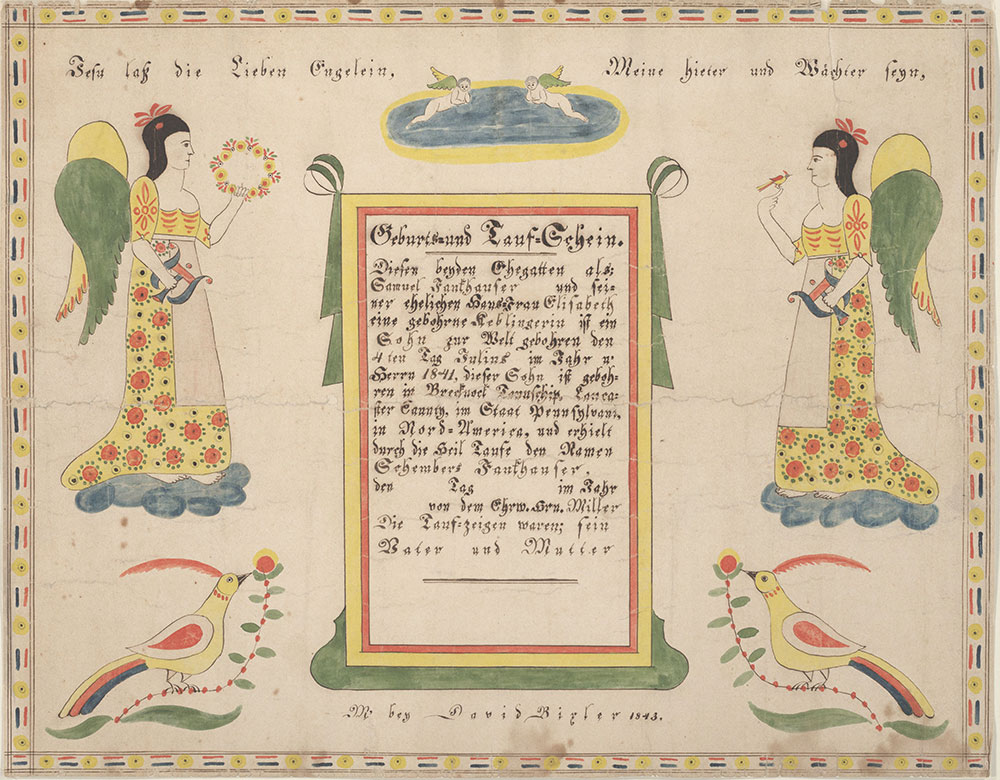 Jesu laß die Lieben Engelein, Meine hieter und Wächter seyn,
Geburts=und Tauf=Schein.
Diesen beyden Ehegatten als;
Samuel Fankhauser und sei=
ner ehelichen Hans-Frau Elisabeth
eine gebohrne Keblingerin ist ein
Sohn zur Welt gebohren den
4ten Tag Julius im Jahr u:
Herrn 1841, dieser Sohn ist geboh=
ren in Brecknock Taunschip, Lanca=
ster Caunty, im Staat Pennsylvani,
in Nord=America, und erhielt
durch die Heil Taufe den Namen
Schembers Fankhauser,
den Tag im Jahr
von dem Ehrw. Hrn. Miller
Die Tauf=zeigen waren; sein
Vater und Mutter
M bey David Bixler 1843.